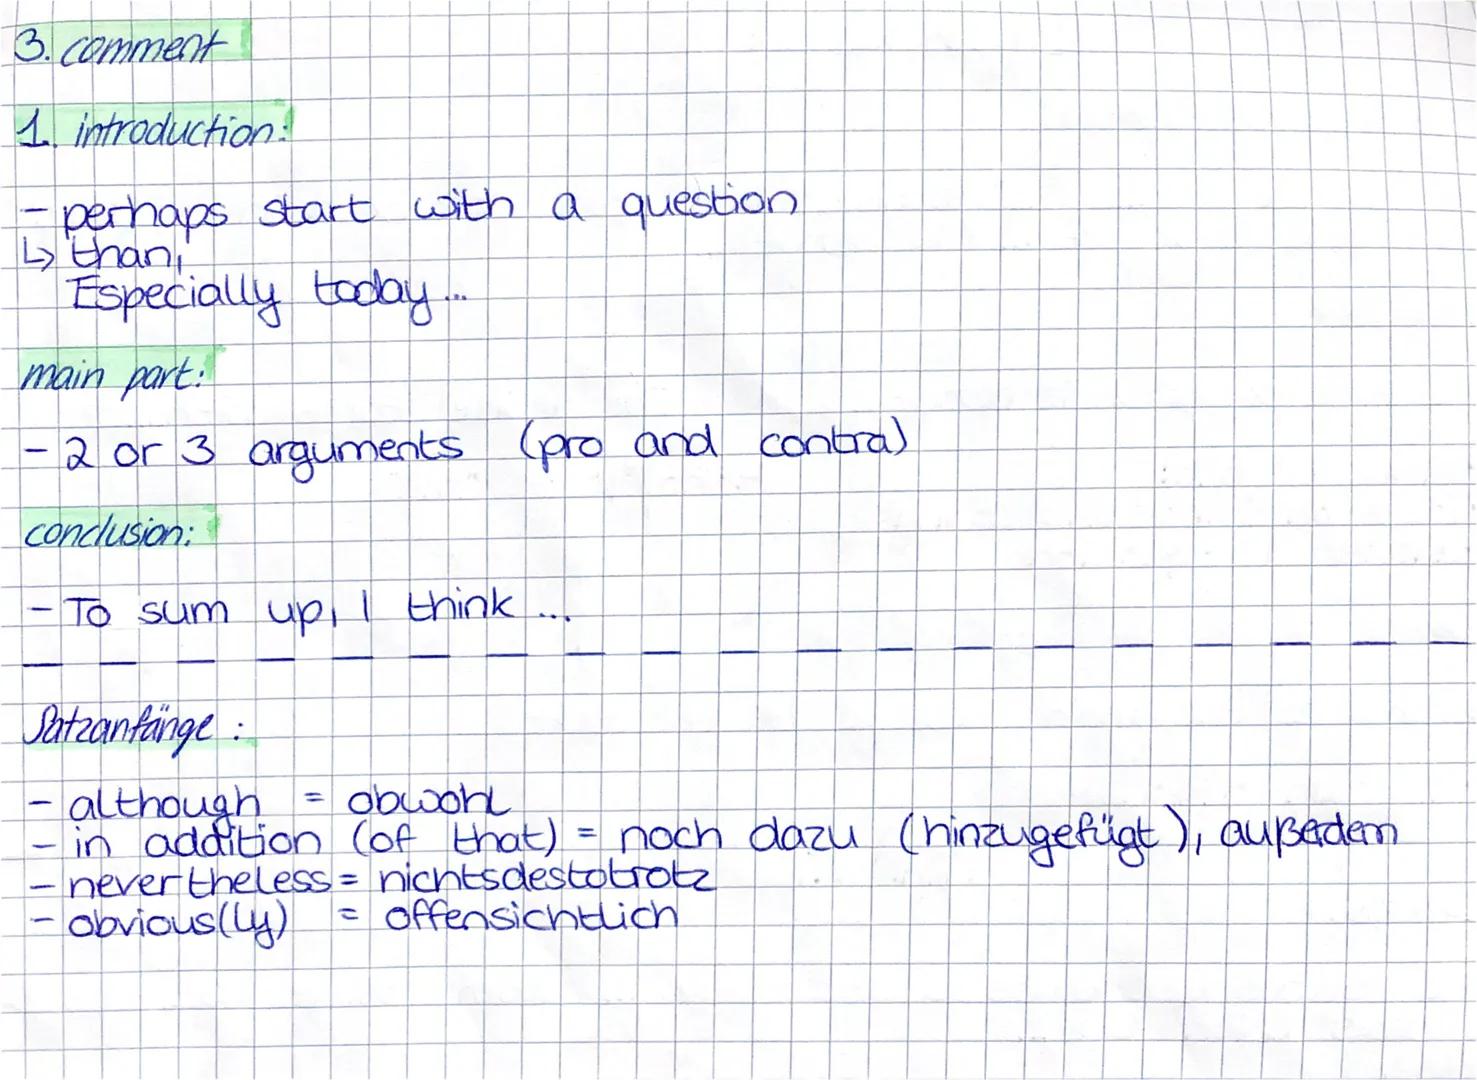 3. comment
1. introduction:
- perhaps start with a question
↳ than,
Especially today...
main part:
- 2 or 3 arguments (pro and contra)
conclusion:
- To sum up, I think ...
Satzanfänge :
- although = obwohl
- in addition (of that) = noch dazu (hinzugefügt), außedem
- nevertheless = nichtsdestotrotz
- obvious(ly) = offensichtlich